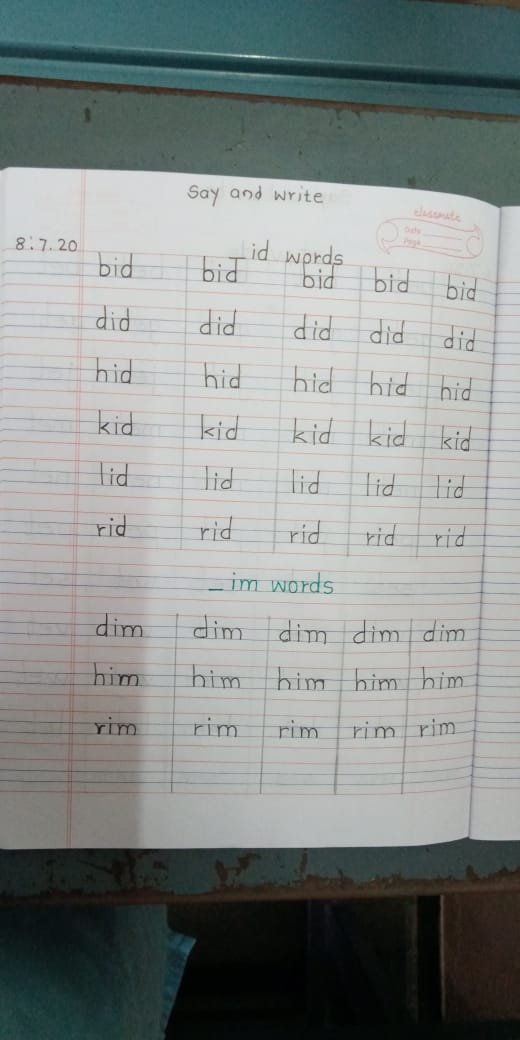 Say and write
classmate
Date
Page
8.7.20
_ id words
bid bid bid bid bid
did did did did did
hid hid hid hid hid
kid kid kid kid kid
lid lid lid lid lid
rid rid rid rid rid
_ im words
dim dim dim dim dim
him him him him him
rim rim rim rim rim